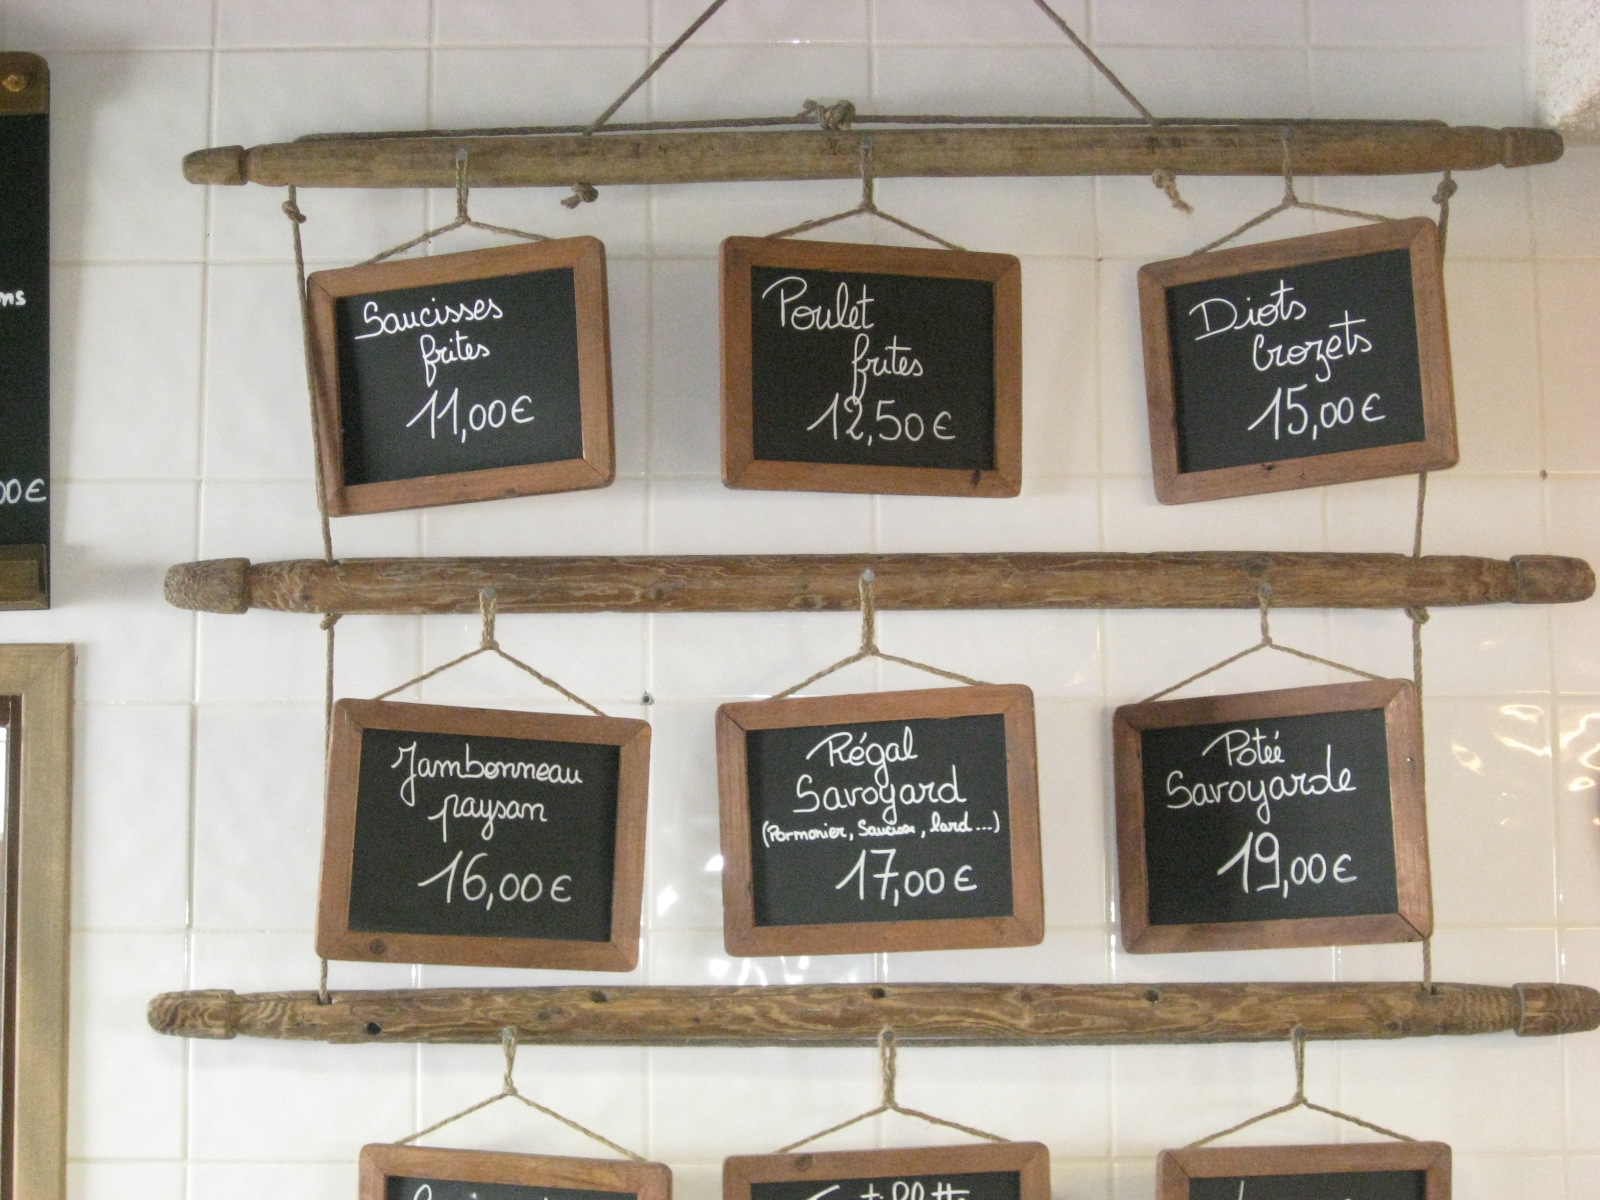 ns
00€
Saucisses
frites
11,00€
Poulet
frites
12,50€
Diots
Crozets
15,00€
Jambonneau
paysan
16,00€
Régal
Savoyard
(Pormonier, Saucisse, lard...)
17,00€
Potéé
Savoyarde
19,00€